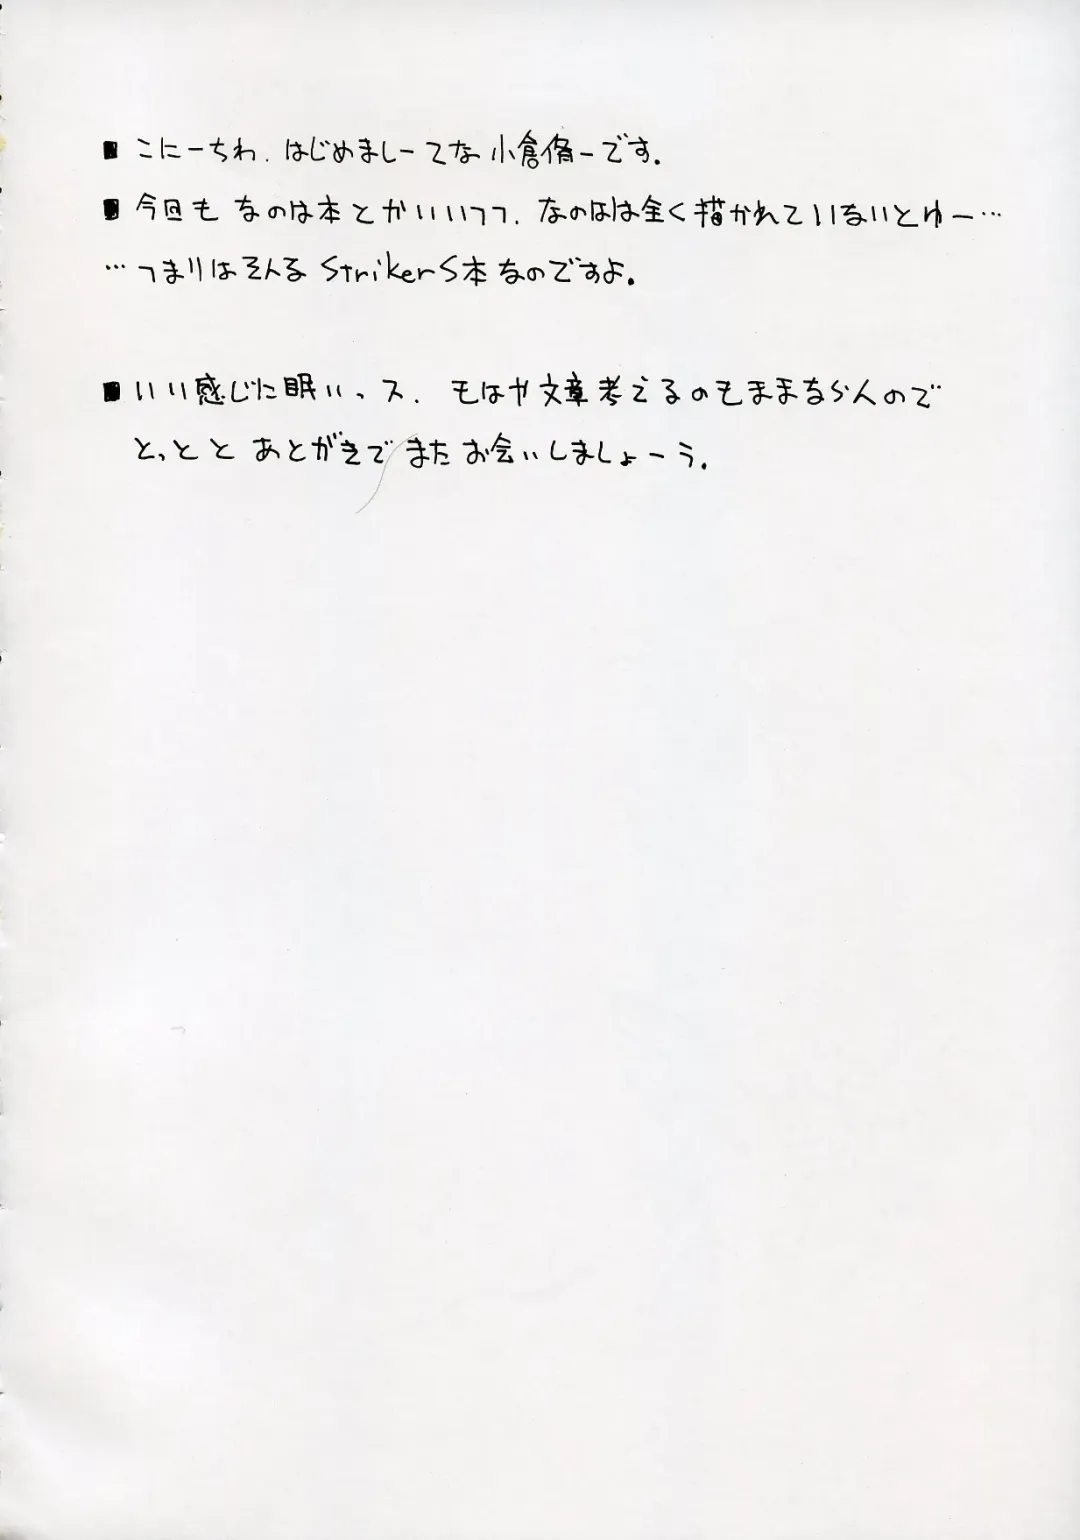 ■ こにーちわ. はじめましーてな 小倉脩一です.
■ 今回も なのは本とかいいつつ. なのはは全く描かれていないとゆー…
…つまりはそんな StrikerS本なのですよ.
■ いい感じに眠いっス. もはや文章考えるのもままならんので
とっとと あとがきで また お会いしましょーう.